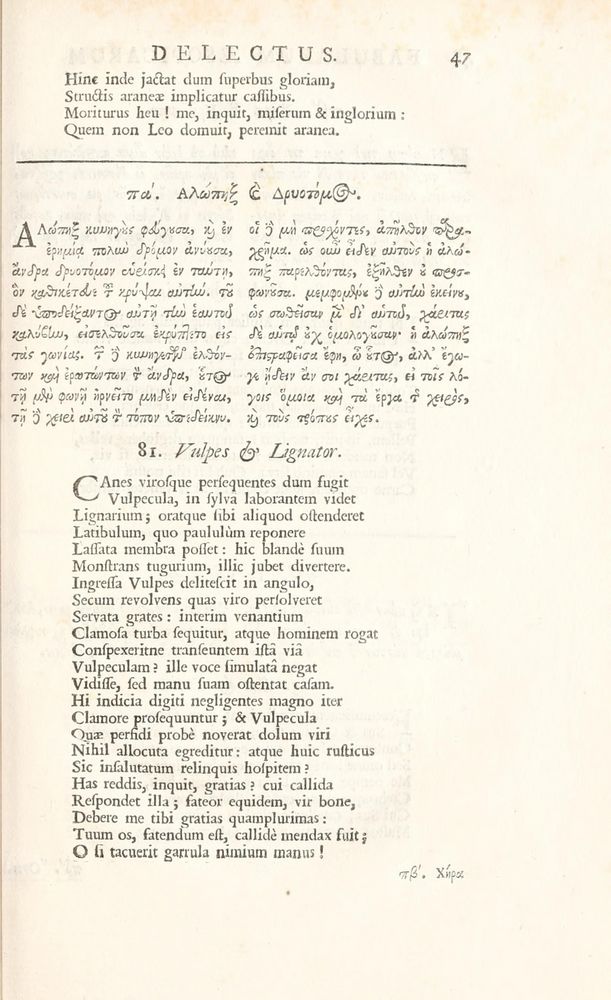 DELECTUS. 47
Hinc inde jactat dum ſuperbus gloriam,
Structis araneæ implicatur caſſibus.
Moriturus heu ! me, inquit, miſerum & inglorium :
Quem non Leo domuit, peremit aranea.
πα΄. Αλώπηξ ϗ Δρυοτόμος.
Αλώπηξ κυνηγὸς φεύγουσα, ϗ ἐν
ἐρημία πολιὼ δρόμον ἀνύουσα,
ἄνδρα δρυοτόμον εὑρίσκει ἐν ταύτη,
ὃν καθικέτευε τ κρύψαι αὐτιώ. τοῦ
δὲ ὑποδείξαντος αὐτῆ τιὼ ἑαυτοῦ
καλύβιω, εἰσελθοῦσα ἐκρύπτετο εἰς
τὰς γωνίας. τ ϳ κυνηγετῶν ἐλθόν-
των καὶ ἐρωτώντων τ ἄνδρα, οὗτος
τῆ μὲν φωνῆ ἠρνεῖτο μηδὲν εἰδέναι,
τῆ ϳ χειρὶ αὐτοῦ τ τόπον ὑπεδείκνυ.
οἱ ϳ μὴ προσχόντες, ἀπῆλθον παρα-
χρῆμα. ὡς οὖν εἶδεν αὐτοὺς ἡ ἀλώ-
πηξ παρελθόντας, ἐξῆλθεν οὐ προσ-
φωνοῦσα. μεμφομένου ϳ αὐτιὼ ἐκείνου,
ὡς σωθεῖσαν μ̃ δι' αὐτοῦ, χάριτας
δὲ αὐτῷ οὐχ ὁμολογοῦσαν· ἡ ἀλώπηξ
ἐπιστραφεῖσα ἔφη, ὦ οὗτος, ἀλλ' ἔγω-
γε ἤδειν ἄν σοι χάριτας, εἰ τοῖς λό-
γοις ὅμοια καὶ τὰ ἔργα τ χειρὸς,
ϗ τοὺς τρόπους εἶχες.
81. Vulpes & Lignator.
CAnes viroſque perſequentes dum fugit
Vulpecula, in ſylvâ laborantem videt
Lignarium; oratque ſibi aliquod oſtenderet
Latibulum, quo paululùm reponere
Laſſata membra poſſet: hic blandè ſuum
Monſtrans tugurium, illic jubet divertere.
Ingreſſa Vulpes deliteſcit in angulo,
Secum revolvens quas viro perſolveret
Servata grates: interim venantium
Clamoſa turba ſequitur, atque hominem rogat
Conſpexeritne tranſeuntem iſtâ viâ
Vulpeculam? ille voce ſimulatâ negat
Vidiſſe, ſed manu ſuam oſtentat caſam.
Hi indicia digiti negligentes magno iter
Clamore proſequuntur; & Vulpecula
Quæ perfidi probè noverat dolum viri
Nihil allocuta egreditur: atque huic ruſticus
Sic inſalutatum relinquis hoſpitem?
Has reddis, inquit, gratias? cui callida
Reſpondet illa; fateor equidem, vir bone,
Debere me tibi gratias quamplurimas:
Tuum os, fatendum eſt, callidè mendax fuit;
O ſi tacuerit garrula nimium manus!
πβ΄. Χήρα